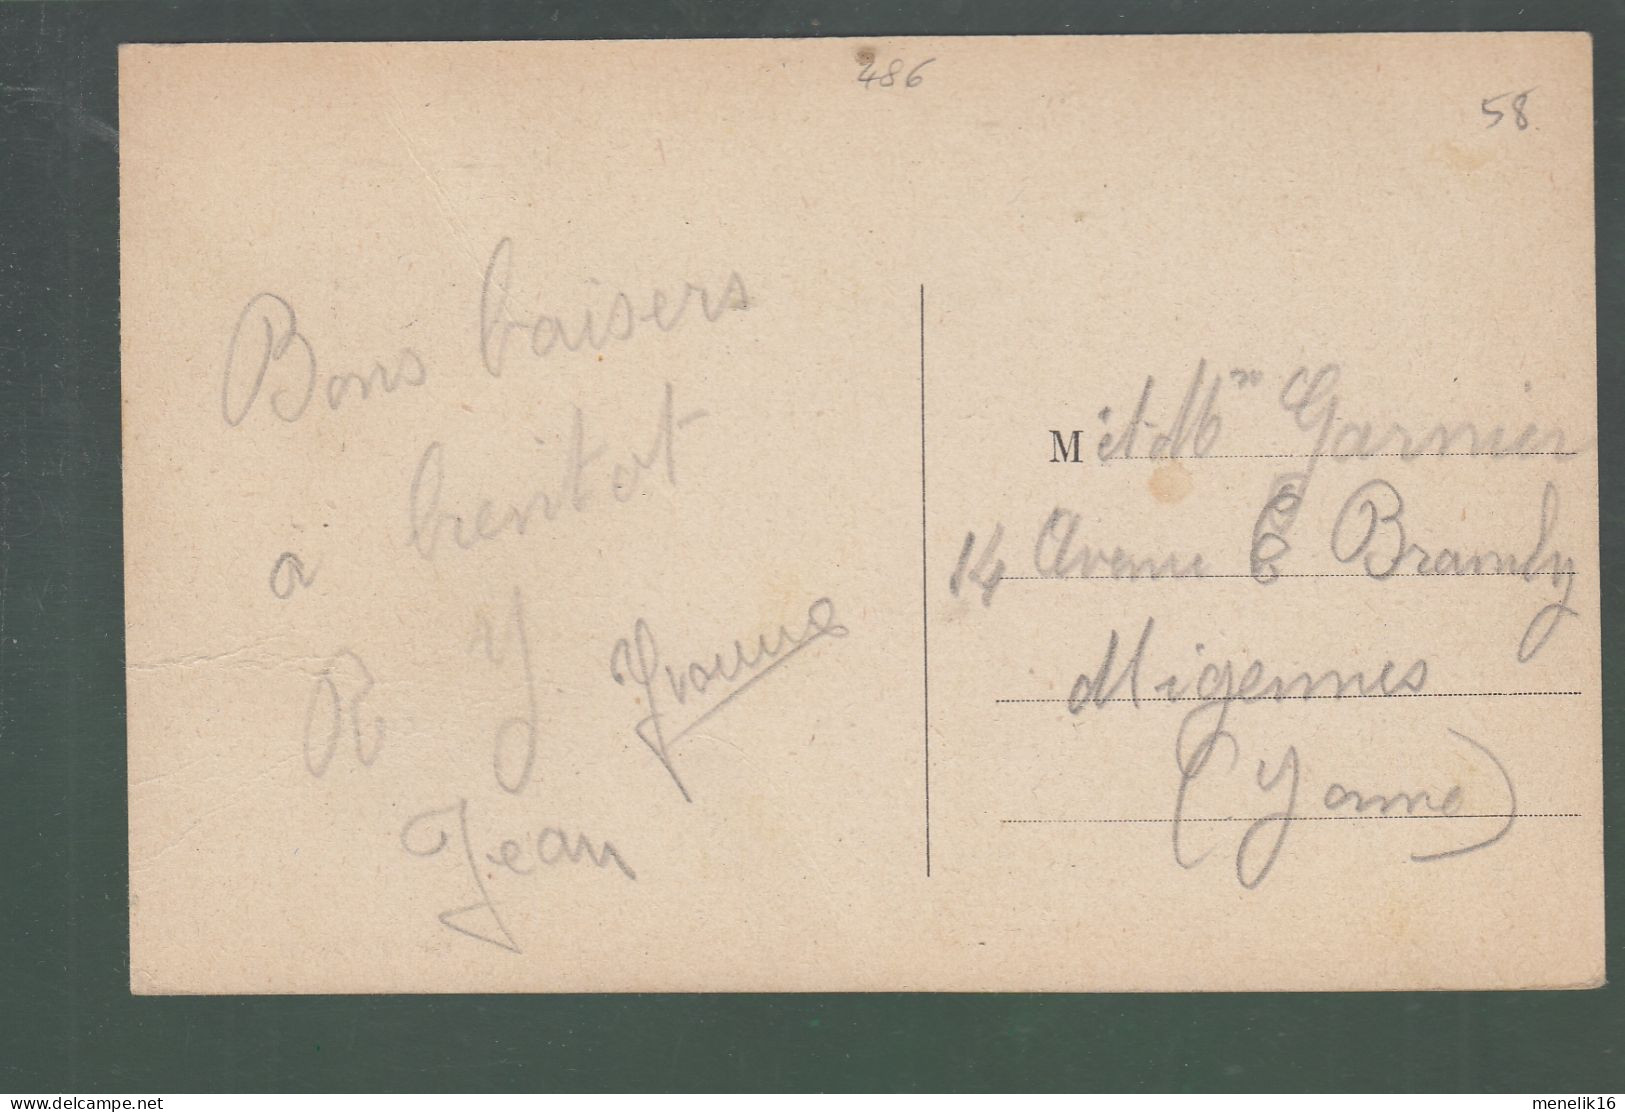 486
58
Bons baisers
à bientot
R. Y. Yvonne
Jean
M et Mm Garnier
14 Avenue E Brambly
Migennes
(Yonne)
www.delcampe.net
menelik16